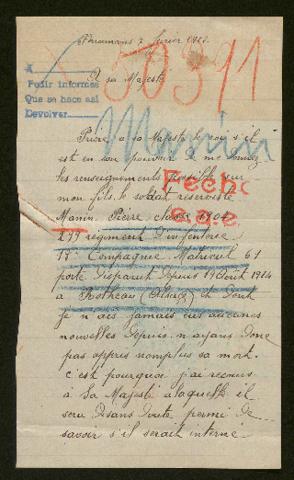 février 1915
A sa Majesté
50391
A
Pedir informes
Que se hace así
Devolver
Manin
Prière a sa Majesté le roi s'il
est en son pouvoir de me donner
les renseignements possible sur
mon fils, le soldat reserviste
Fecho
Manin Pierre classe 1904
277 régiment d'infanterie
17e Compagnie Matricul 61
porté disparut depuis 19 Aout 1914
a Rothau (Alsace) et dont
je n'ais jamais eu aucunes
nouvelles depuis n'ayans donc
pas appris nomplus sa mort.
c'est pourquoi j'ai recours
a Sa Majesté a laquelle il
sera sans doute permi de
savoir s'il serait interné